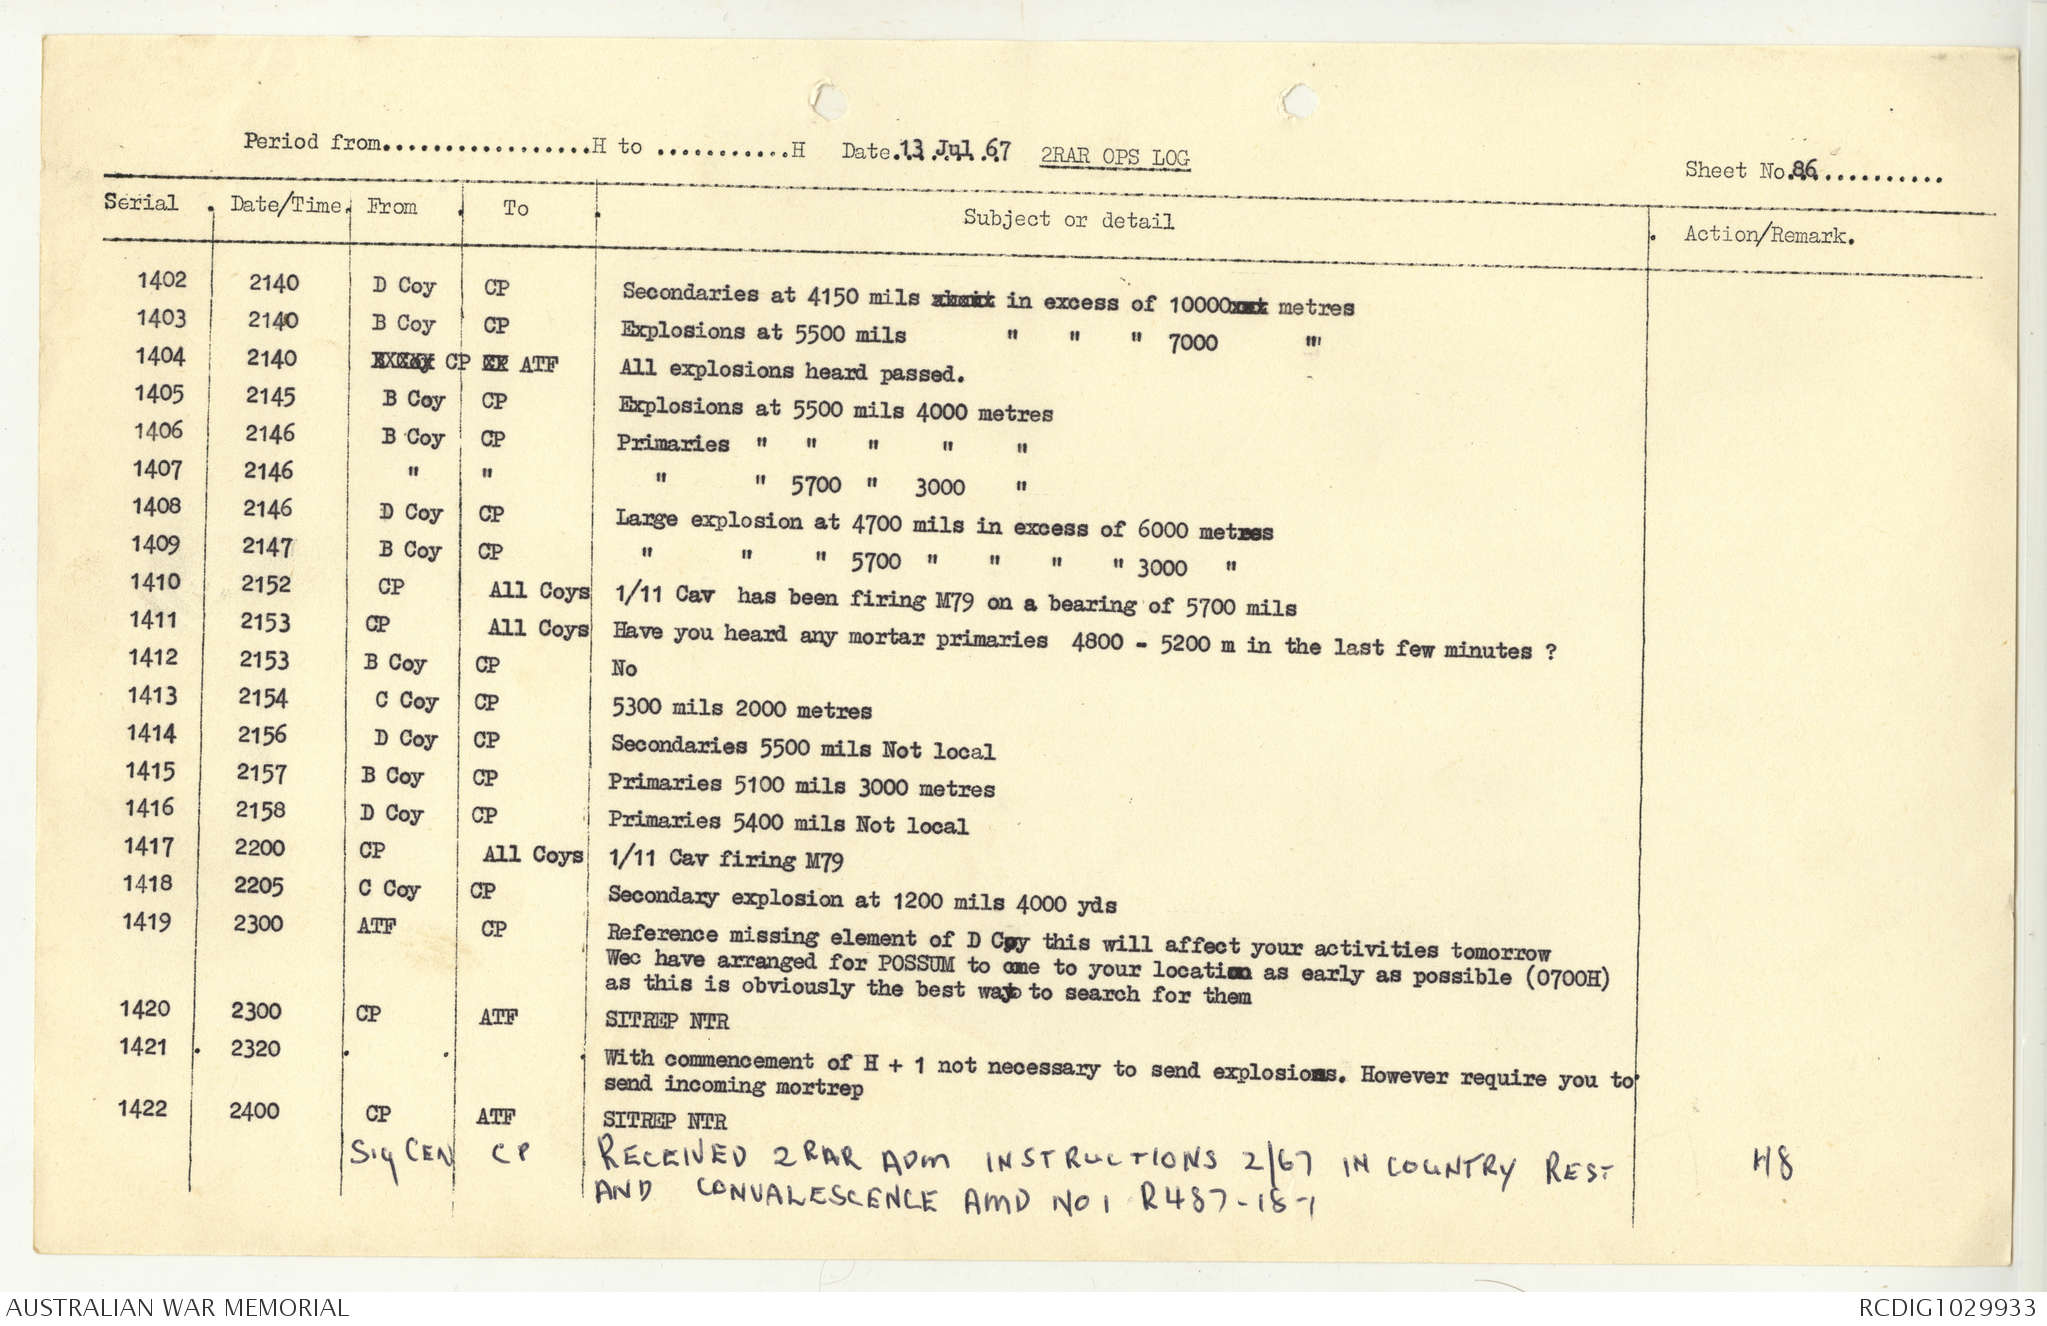 Period from..................H to ............H Date.13 Jul 67 2RAR OPS LOG
Sheet No.86............
Serial . Date/Time. From . To . Subject or detail . Action/Remark.
1402 2140 D Coy CP Secondaries at 4150 mils in excess of 10000 metres
1403 2140 B Coy CP Explosions at 5500 mils " " " 7000 "
1404 2140 CP ATF All explosions heard passed.
1405 2145 B Coy CP Explosions at 5500 mils 4000 metres
1406 2146 B Coy CP Primaries " " " " "
1407 2146 " " " " 5700 " 3000 "
1408 2146 D Coy CP Large explosion at 4700 mils in excess of 6000 metres
1409 2147 B Coy CP " " " 5700 " " " " 3000 "
1410 2152 CP All Coys 1/11 Cav has been firing M79 on a bearing of 5700 mils
1411 2153 CP All Coys Have you heard any mortar primaries 4800 - 5200 m in the last few minutes ?
1412 2153 B Coy CP No
1413 2154 C Coy CP 5300 mils 2000 metres
1414 2156 D Coy CP Secondaries 5500 mils Not local
1415 2157 B Coy CP Primaries 5100 mils 3000 metres
1416 2158 D Coy CP Primaries 5400 mils Not local
1417 2200 CP All Coys 1/11 Cav firing M79
1418 2205 C Coy CP Secondary explosion at 1200 mils 4000 yds
1419 2300 ATF CP Reference missing element of D Coy this will affect your activities tomorrow
Wec have arranged for POSSUM to ome to your location as early as possible (0700H)
as this is obviously the best way to search for them
1420 2300 CP ATF SITREP NTR
1421 . 2320 . . . With commencement of H + 1 not necessary to send explosions. However require you to
send incoming mortrep
1422 2400 CP ATF SITREP NTR
Sig CEN CP RECEIVED 2RAR ADM INSTRUCTIONS 2/67 IN COUNTRY REST H8
AND CONVALESCENCE AMD NO 1 R487-18-1
AUSTRALIAN WAR MEMORIAL RCDIG1029933